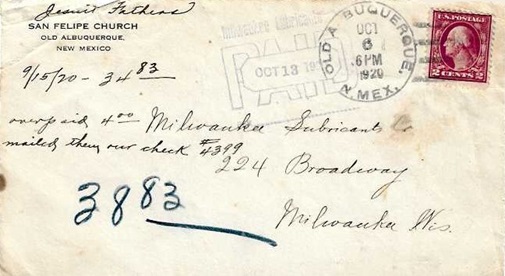 Jesuit Fathers
SAN FELIPE CHURCH
OLD ALBUQUERQUE,
NEW MEXICO
9/15/20 - 34 83
Milwaukee Lubricants
PAID
OCT 13
OLD ALBUQUERQUE,
N. MEX.
OCT
6
6 PM
1920
U.S. POSTAGE
2 CENTS 2
overpaid 4 00
mailed them our check # 4399
Milwaukee Lubricants Co
224 Broadway
Milwaukee Wis.
38 83